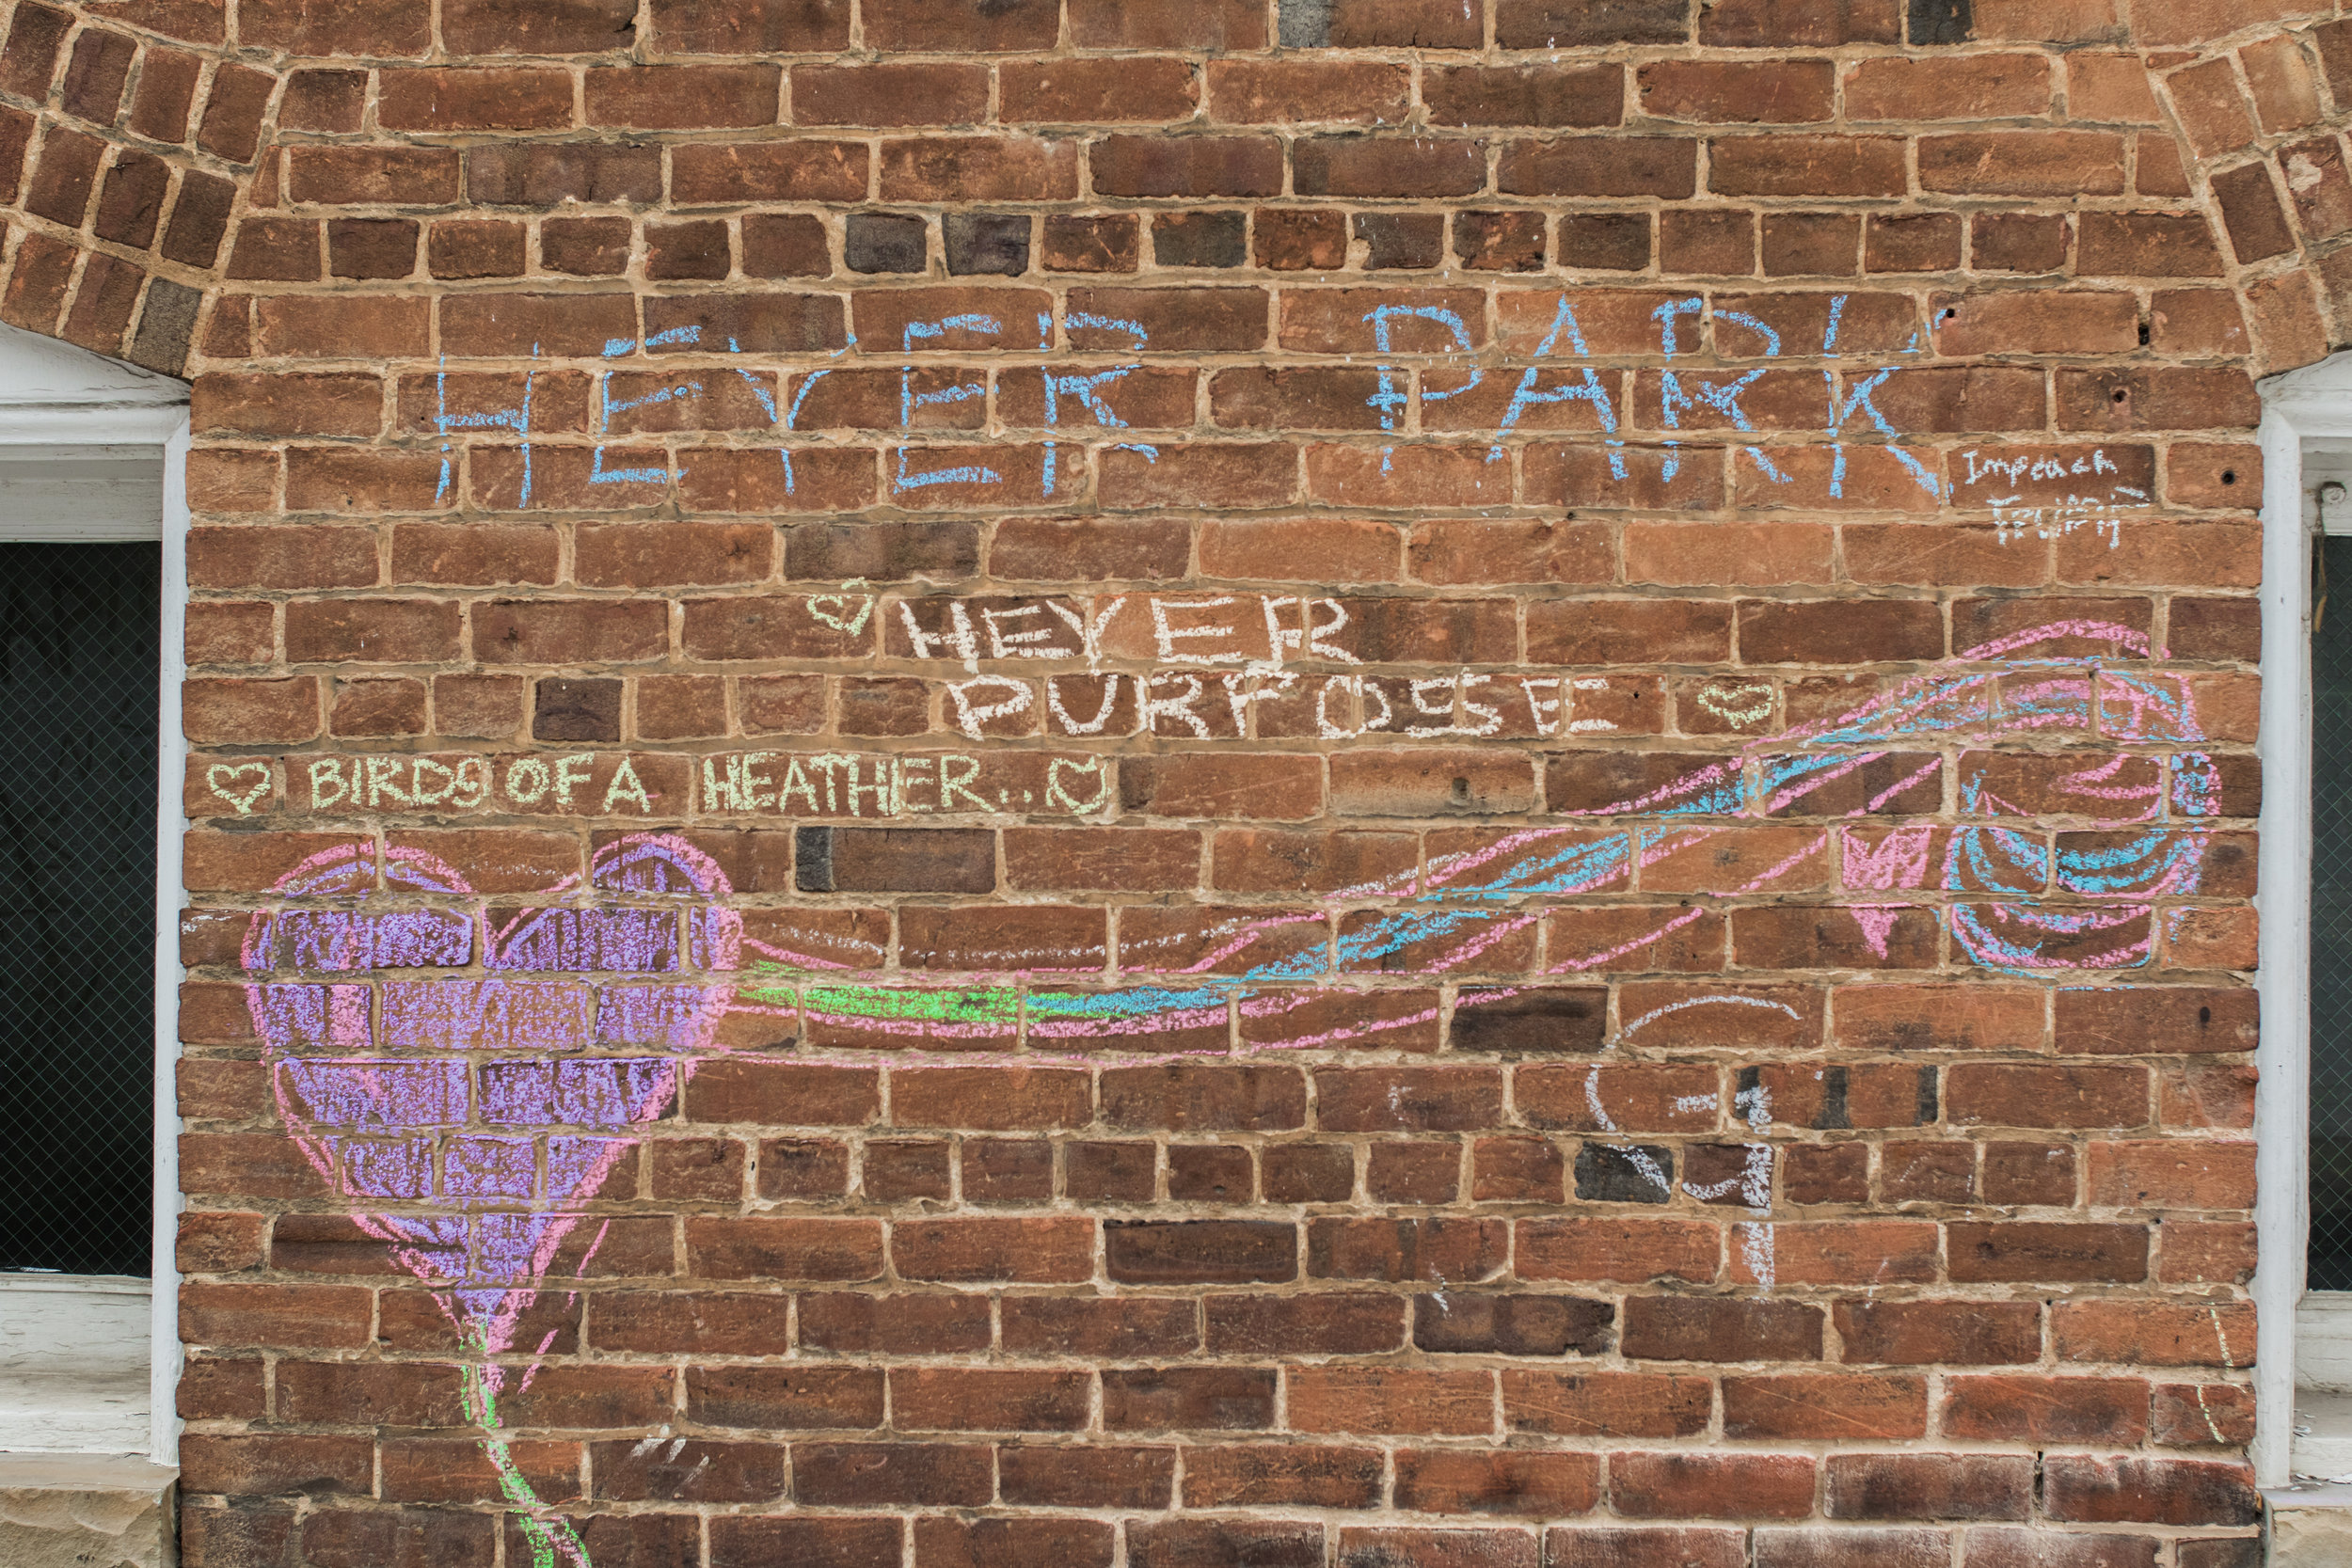 HEYER PARK
Impeach
HEYER
PURPOSE
BIRDS OF A HEATHER..